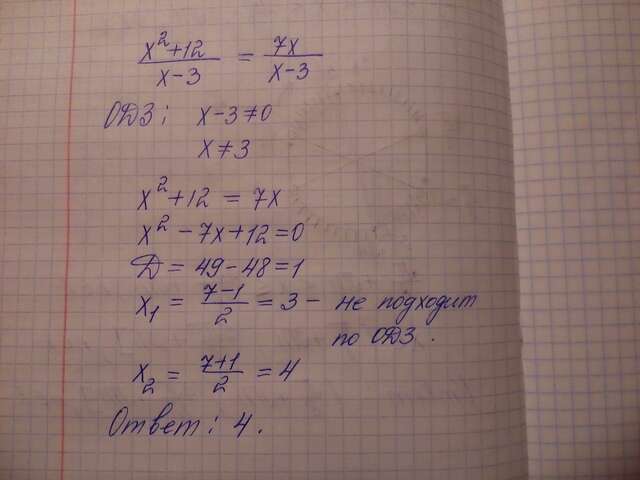 x²+12/x−3 = 7x/x−3
ОДЗ: x−3≠0
x≠3
x²+12 = 7x
x²−7x+12=0
D = 49−48=1
x₁ = 7−1/2 = 3 − не подходит
по ОДЗ.
x₂ = 7+1/2 = 4
Ответ: 4.